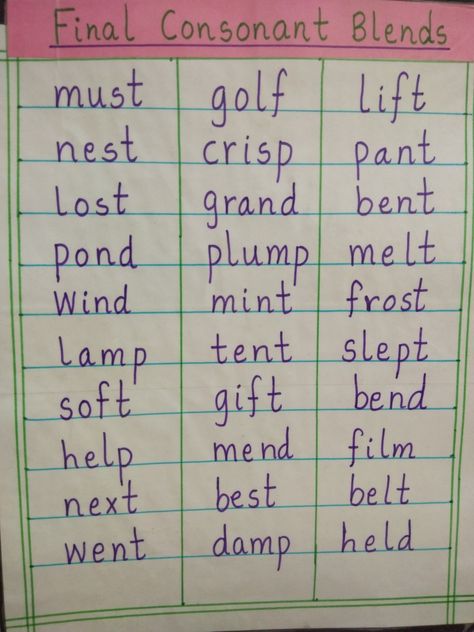 Final Consonant Blends
must golf lift
nest crisp pant
lost grand bent
pond plump melt
wind mint frost
lamp tent slept
soft gift bend
help mend film
next best belt
went damp held